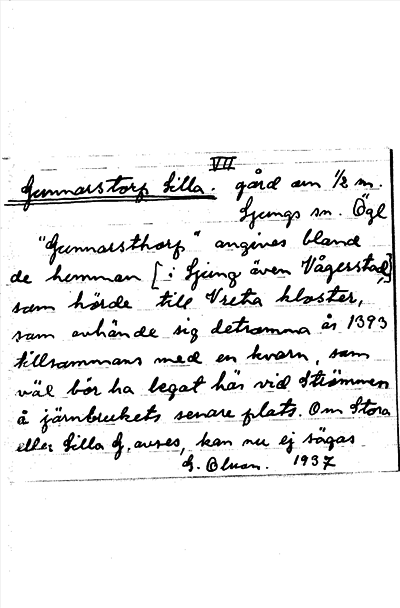 VII
Gunnarstorp Lilla. gård om 1/2 m.
Ljungs sn. Ögl
"Gunnarsthorp" angives bland
de hemman [i Ljung även Vågerstad,]
som hörde till Vreta kloster,
som avhände sig detsamma år 1393
tillsammans med en kvarn, som
väl bör ha legat här vid Strömmen
å järnbrukets senare plats. Om Stora
eller Lilla G. avses, kan nu ej sägas
1937